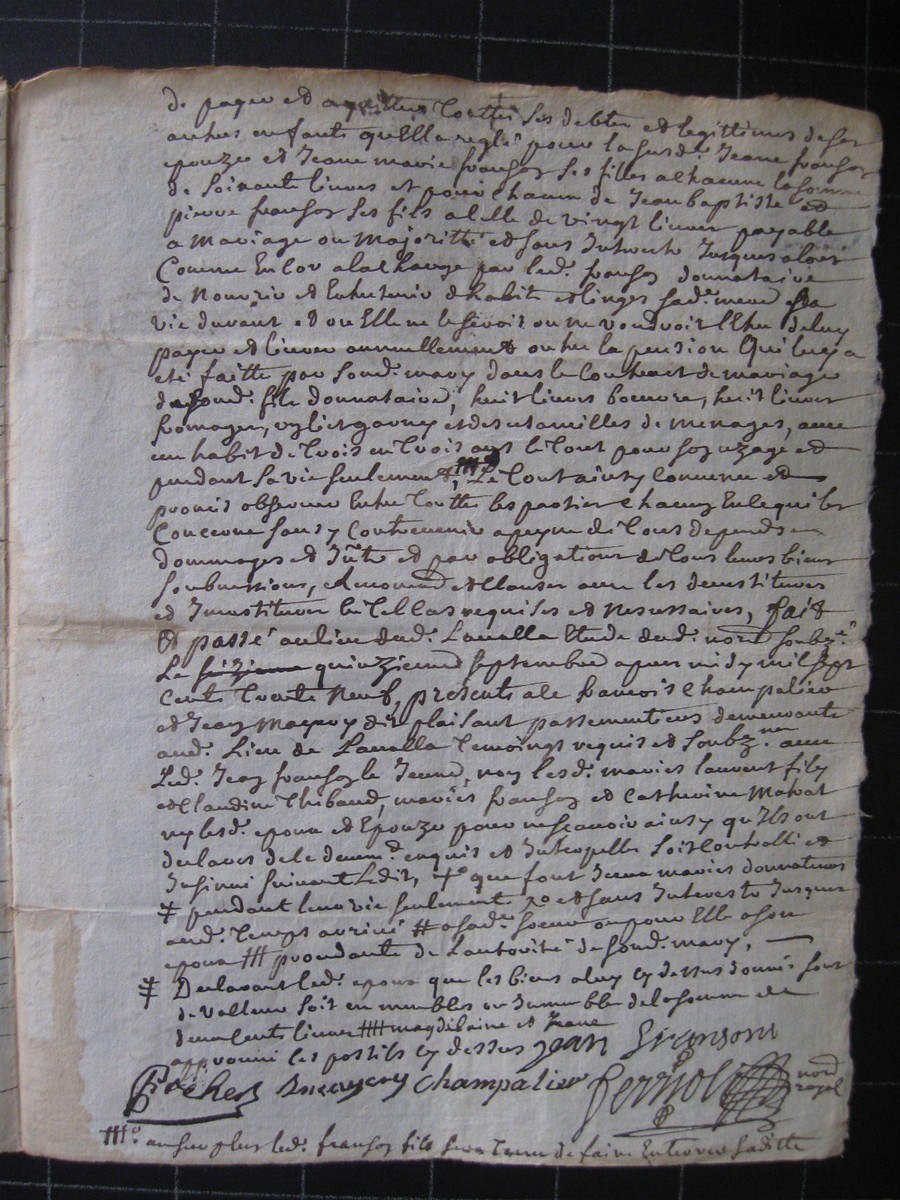 de payer et acquitter touttes ses debtes et legittimes de ses
autres enfants quella reglé pour lasusd.e Jeane franson
epouze et Jeane marie franson ses filles a chacune la somme
de soixante livres et pour chacun de Jean baptiste et
pierre franson ses fils a celle de vingt livres payable
a mariage ou majoritté et sans Interests Jusques alors
Comme Encor a la charge par led. franson donnataire
de Nourrir et Entretenir d'habits et linges sad.e mere sa
vie durant et ou Elle ne le seroit ou ne voudroit l'Etre de luy
payer et livrer annuellement outre la pension Qui luy a
eté faitte par sond. mary dans le Contract de mariage
de sond. fils donnataire, huit livres beurre, huit livres
fromages, un lict garny et des utansilles de menages, avec
un habit de trois en trois ans le tout pour son uzage et
pendant sa vie seulement, # Le tout ainsy convenu et
promis observer Entre touttes les parties chacun En le qui les
Concerne sans y Contrevenir a peyne de tous depends
dommages et Intts et par obligations de tous leurs biens
soubmissions, et clauses avec les devestitures
et Investitures En tel cas requises et nesessaires, fait
et passé au lieu dud. Lavalla Etude dud. nore soubzné
Le seizieme quinzieme septembre apres midy mil sept
Cents trente Neuf, presents sr francois champalier
et Jean Mayery dit plaisant passementiers demeurants
aud. Lieu de Lavalla temoings requis et soubznes avec
Led. Jean franson le Jeune, non lesd. mariés laurent fily
et Claudine thibaud, mariés franson et Catherine Matrat
ny lesd. epoux et Epouze pour ne scavoir ainsy qu'Ils ont
declaré de ce deument enquis et Interpellés soit Controllé et
Insinué suivant L'edit, +o que font Iceux mariés donnateurs
‡ pendant leur vie seulement 2o et sans Interests Jusques
aud. temps arrivé ## a sad.e soeur ou pour Elle a son
epoux ### procedante de L'autorité de sond. mary,
‡ Declarant led. epoux que les biens a luy cy dessus donnés sont
de valleur soit en meubles ou Immeuble de la somme de
deux cents livres #### magdelaine et Jeane
approuvé les postils cy dessus Jean Franson
Bochex Mayery Champalier Ferriol nore royal
###o. en sus plus led. franson fils sera tenu de faire Enterrer saditte